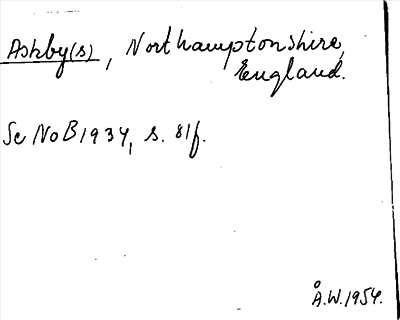 Askby(s), Northamptonshire,
England.
Se NoB 1934, s. 81f.
Å.W. 1954.